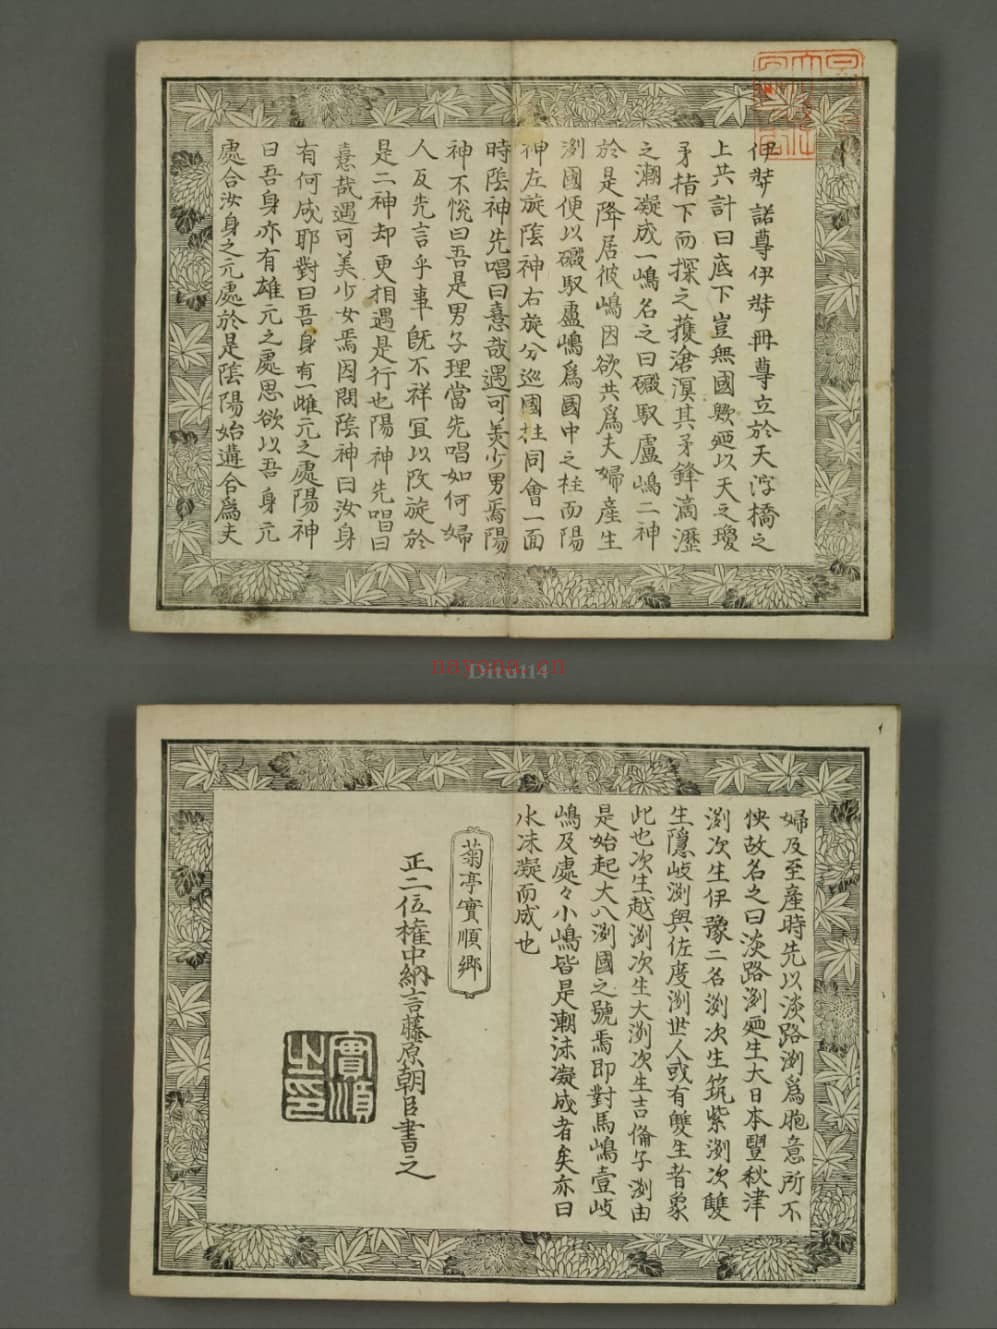 伊弉諾尊伊弉冊尊立於天浮橋之
上共計曰底下豈無國歟廼以天之瓊
矛指下而探之獲滄溟其矛鋒滴瀝
之潮凝成一嶋名之曰磤馭盧嶋二神
於是降居彼嶋因欲共爲夫婦産生
洲國便以磤馭盧嶋爲國中之柱而陽
神左旋陰神右旋分巡國柱同會一面
時陰神先唱曰憙哉遇可美少男焉陽
神不悅曰吾是男子理當先唱如何婦
人反先言乎事旣不祥宜以改旋於
是二神却更相遇是行也陽神先唱曰
憙哉遇可美少女焉因問陰神曰汝身
有何成耶對曰吾身有一雌元之處陽神
曰吾身亦有雄元之處思欲以吾身元
處合汝身之元處於是陰陽始遘合爲夫
Ditu114
婦及至産時先以淡路洲爲胞意所不
快故名之曰淡路洲廼生大日本豐秋津
洲次生伊豫二名洲次生筑紫洲次雙
生隱岐洲與佐度洲世人或有雙生者象
此也次生越洲次生大洲次生吉備子洲由
是始起大八洲國之號焉即對馬嶋壹岐
嶋及處々小嶋皆是潮沫凝成者矣亦曰
水沫凝而成也
菊亭實順卿
正二位權中納言藤原朝臣書之
實順
之印